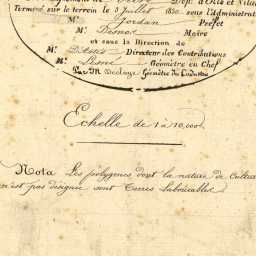 Dép.t d'Ille et Vila
Terminé sur le terrein le 3 Juillet 18 sous l'Administrat
Mr. Jordan Préfet
Mr. Maire
et sous la Direction de
Mr. Directeur des Contributions
Mr. Géomètre en Chef
Par Mr. Géomètre du Cadastre
Echelle de 1 à 10,000
Nota Les polygones dont la nature de cultur
n'est pas désignée sont Terres Labourables